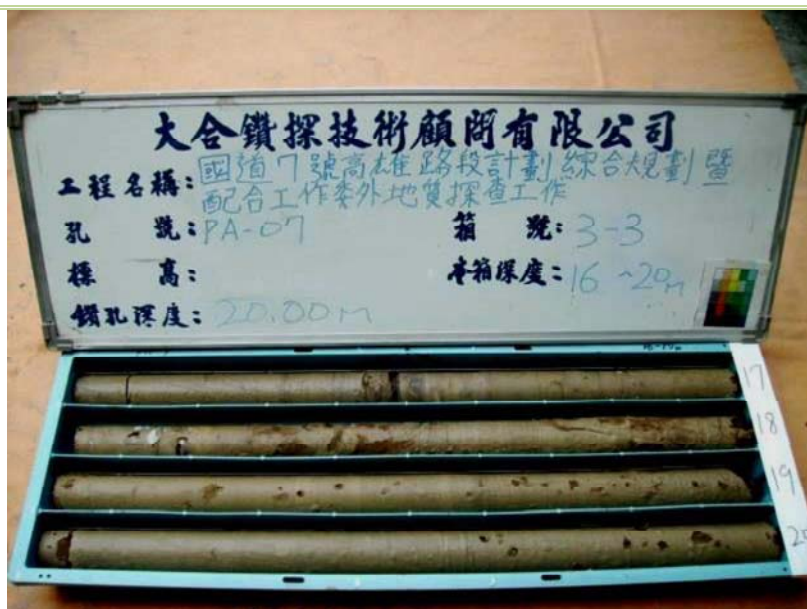 大合鑽探技術顧問有限公司
工程名稱：國道7號高雄路段計劃綜合規劃暨
配合工作委外地質探查工作
孔號：PA-07 箱號：3-3
標高： 本箱深度：16~20m
鑽孔深度：20.00m
17
18
19
20